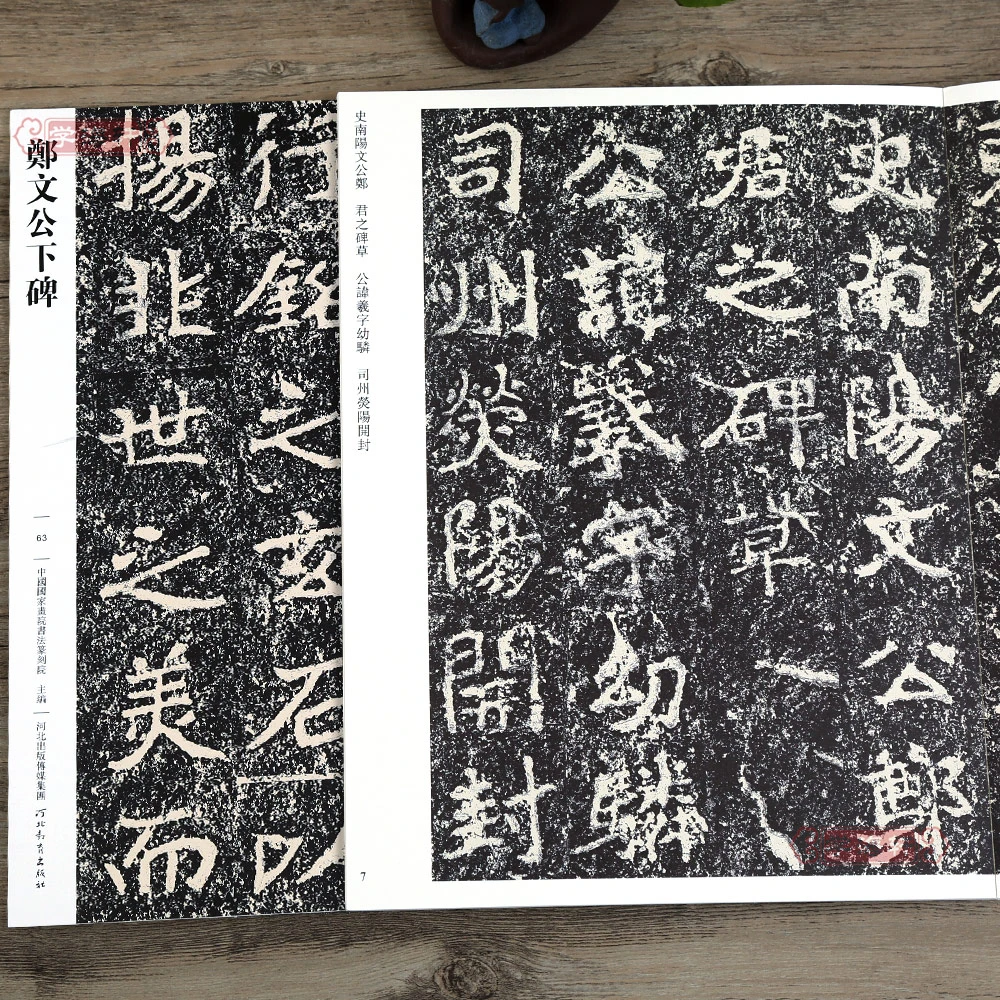 鄭文公下碑
63
中國國家畫院書法篆刻院 主編
河北出版傳媒集團 河北教育出版社
銘之玄石以
揚非世之美而
史南陽文公鄭 君之碑草 公諱羲字幼驎 司州滎陽開封
史南陽文公鄭
君之碑草
公諱羲字幼驎
司州熒陽開封
7